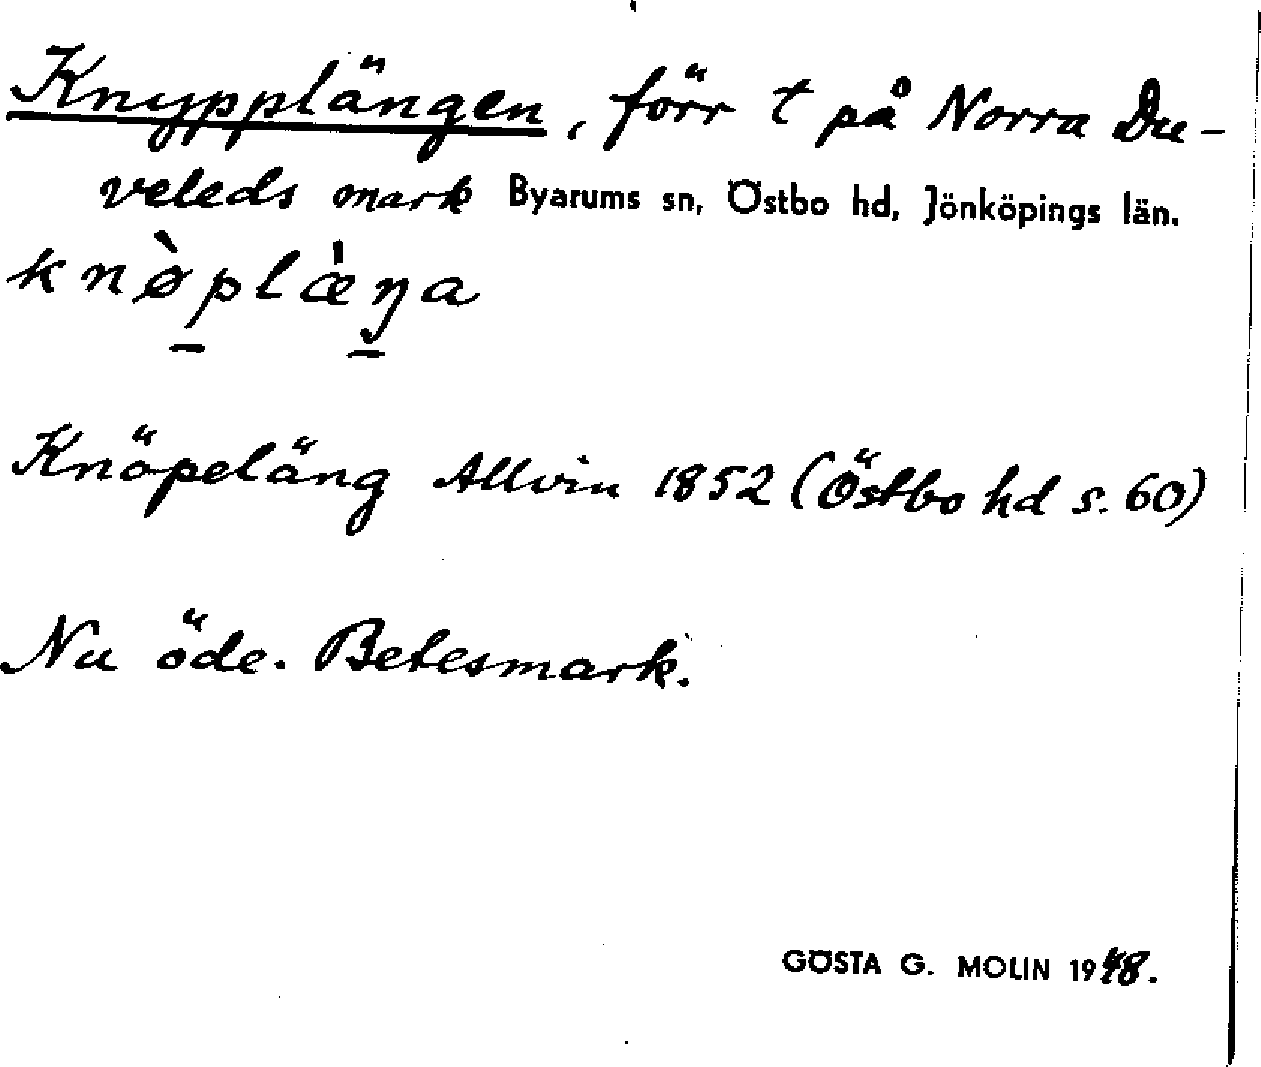 Knypplängen, förr t på Norra Du-
veleds mark Byarums sn, Östbo hd, Jönköpings län.
knø̀plæ̀ŋa
Knöpeläng Allvin 1852 (Östbo hd s. 60)
Nu öde. Betesmark.
GÖSTA G. MOLIN 1948.